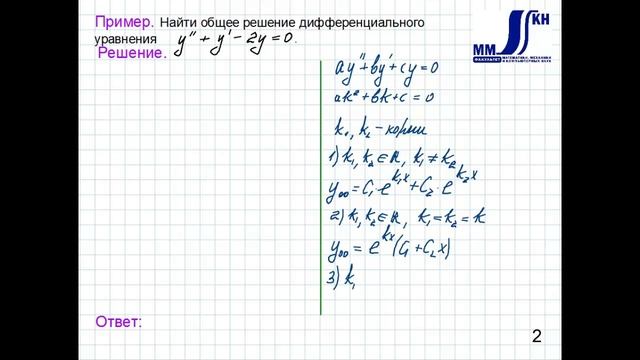 Пример. Найти общее решение дифференциального
уравнения y'' + y' - 2y = 0.
Решение.
ММ КН
ФАКУЛЬТЕТ
МАТЕМАТИКИ, МЕХАНИКИ
И КОМПЬЮТЕРНЫХ НАУК
ay'' + by' + cy = 0
ak² + bk + c = 0
k₁, k₂ - корни
1) k₁, k₂ ∈ R, k₁ ≠ k₂
y₀₀ = C₁·e^{k₁x} + C₂·e^{k₂x}
2) k₁, k₂ ∈ R, k₁ = k₂ = k
y₀₀ = e^{kx}(C₁ + C₂x)
3) k₁
Ответ:
2